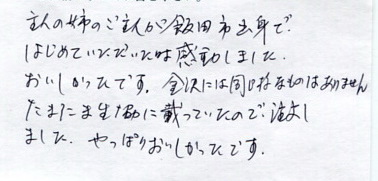 主人の姉のご主人が飯田市出身で、
はじめていただいた時は感動しました。
おいしかったです。金沢には同様なものはありません
たまたま生協に載っていたので注文し
ました。やっぱりおいしかったです。